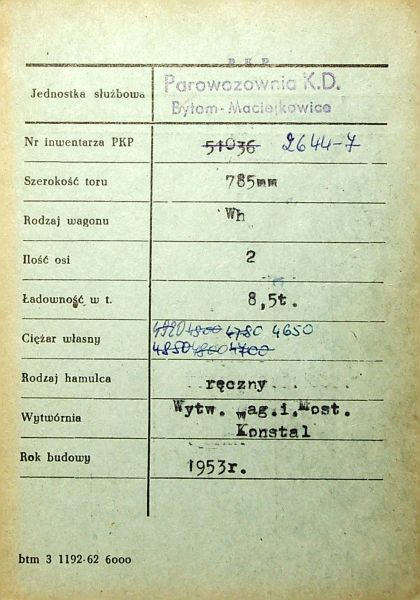 PKP
Jednostka służbowa Parowozownia K.D.
Bytom-Maciejkowice
Nr inwentarza PKP 51036 2644-7
Szerokość toru 785mm
Rodzaj wagonu Wh
Ilość osi 2
Ładowność w t. 8,5t.
Ciężar własny 4820 4800 4780 4650
4850 4800 4700
Rodzaj hamulca ręczny
Wytwórnia Wytw. Wag.i.Most.
Konstal
Rok budowy 1953r.
btm 3 1192-62 6000